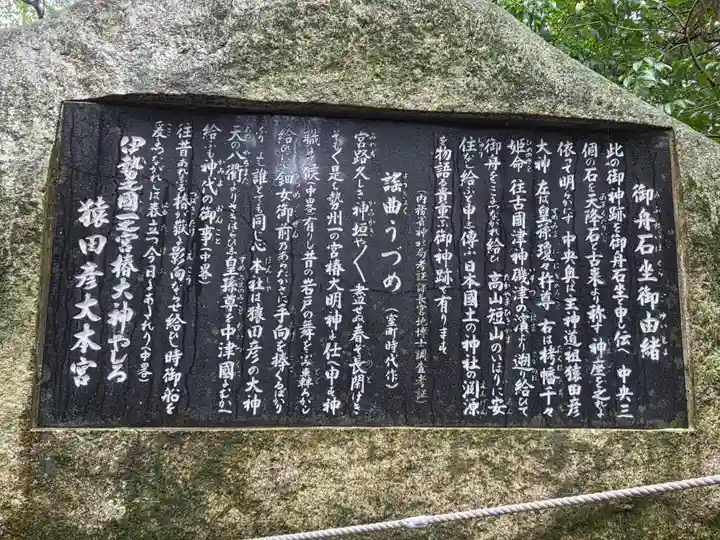 御舟石坐御由緒
此の御神跡を御舟石坐と申し伝へ中央三
個の石を天降石と古来より称す神座を之れに
依って明かにす中央奥は主神道祖猿田彦
大神左は皇孫瓊々杵尊右は栲幡千々
姫命往古国津神磯津の浪より遡り給ひて
御舟をこゝにつながれ給ひ高山短山のいほりに安
住なし給ふと申し傳ふ日本國土の神社の淵源
を物語る貴重な御神跡で有ります
(内務省神社局考証課長宮地博士調査考証)
謡曲うづめ(室町時代作)
宮路久しき神垣や〱書せの春も長閑けき
そもく是は勢州一の宮椿大明神に仕へ申す神
職にて候(中畧)有りし昔の岩戸の舞
給ひし鈿女御前のあらたかに手向を捧くるばかり
よし誰とても同じ心本社は猿田彦の大神
天の八衢よりみさきはらひす皇孫尊を中津國よむかへ
給ふも神代の御事(中畧)
往昔これなる椿が嶽に影向なさせ給ひし時御船を
爰につながれしに表立つ今日にあらわれり(中畧)
伊勢之國一之宮椿大神やしろ
猿田彦大本宮